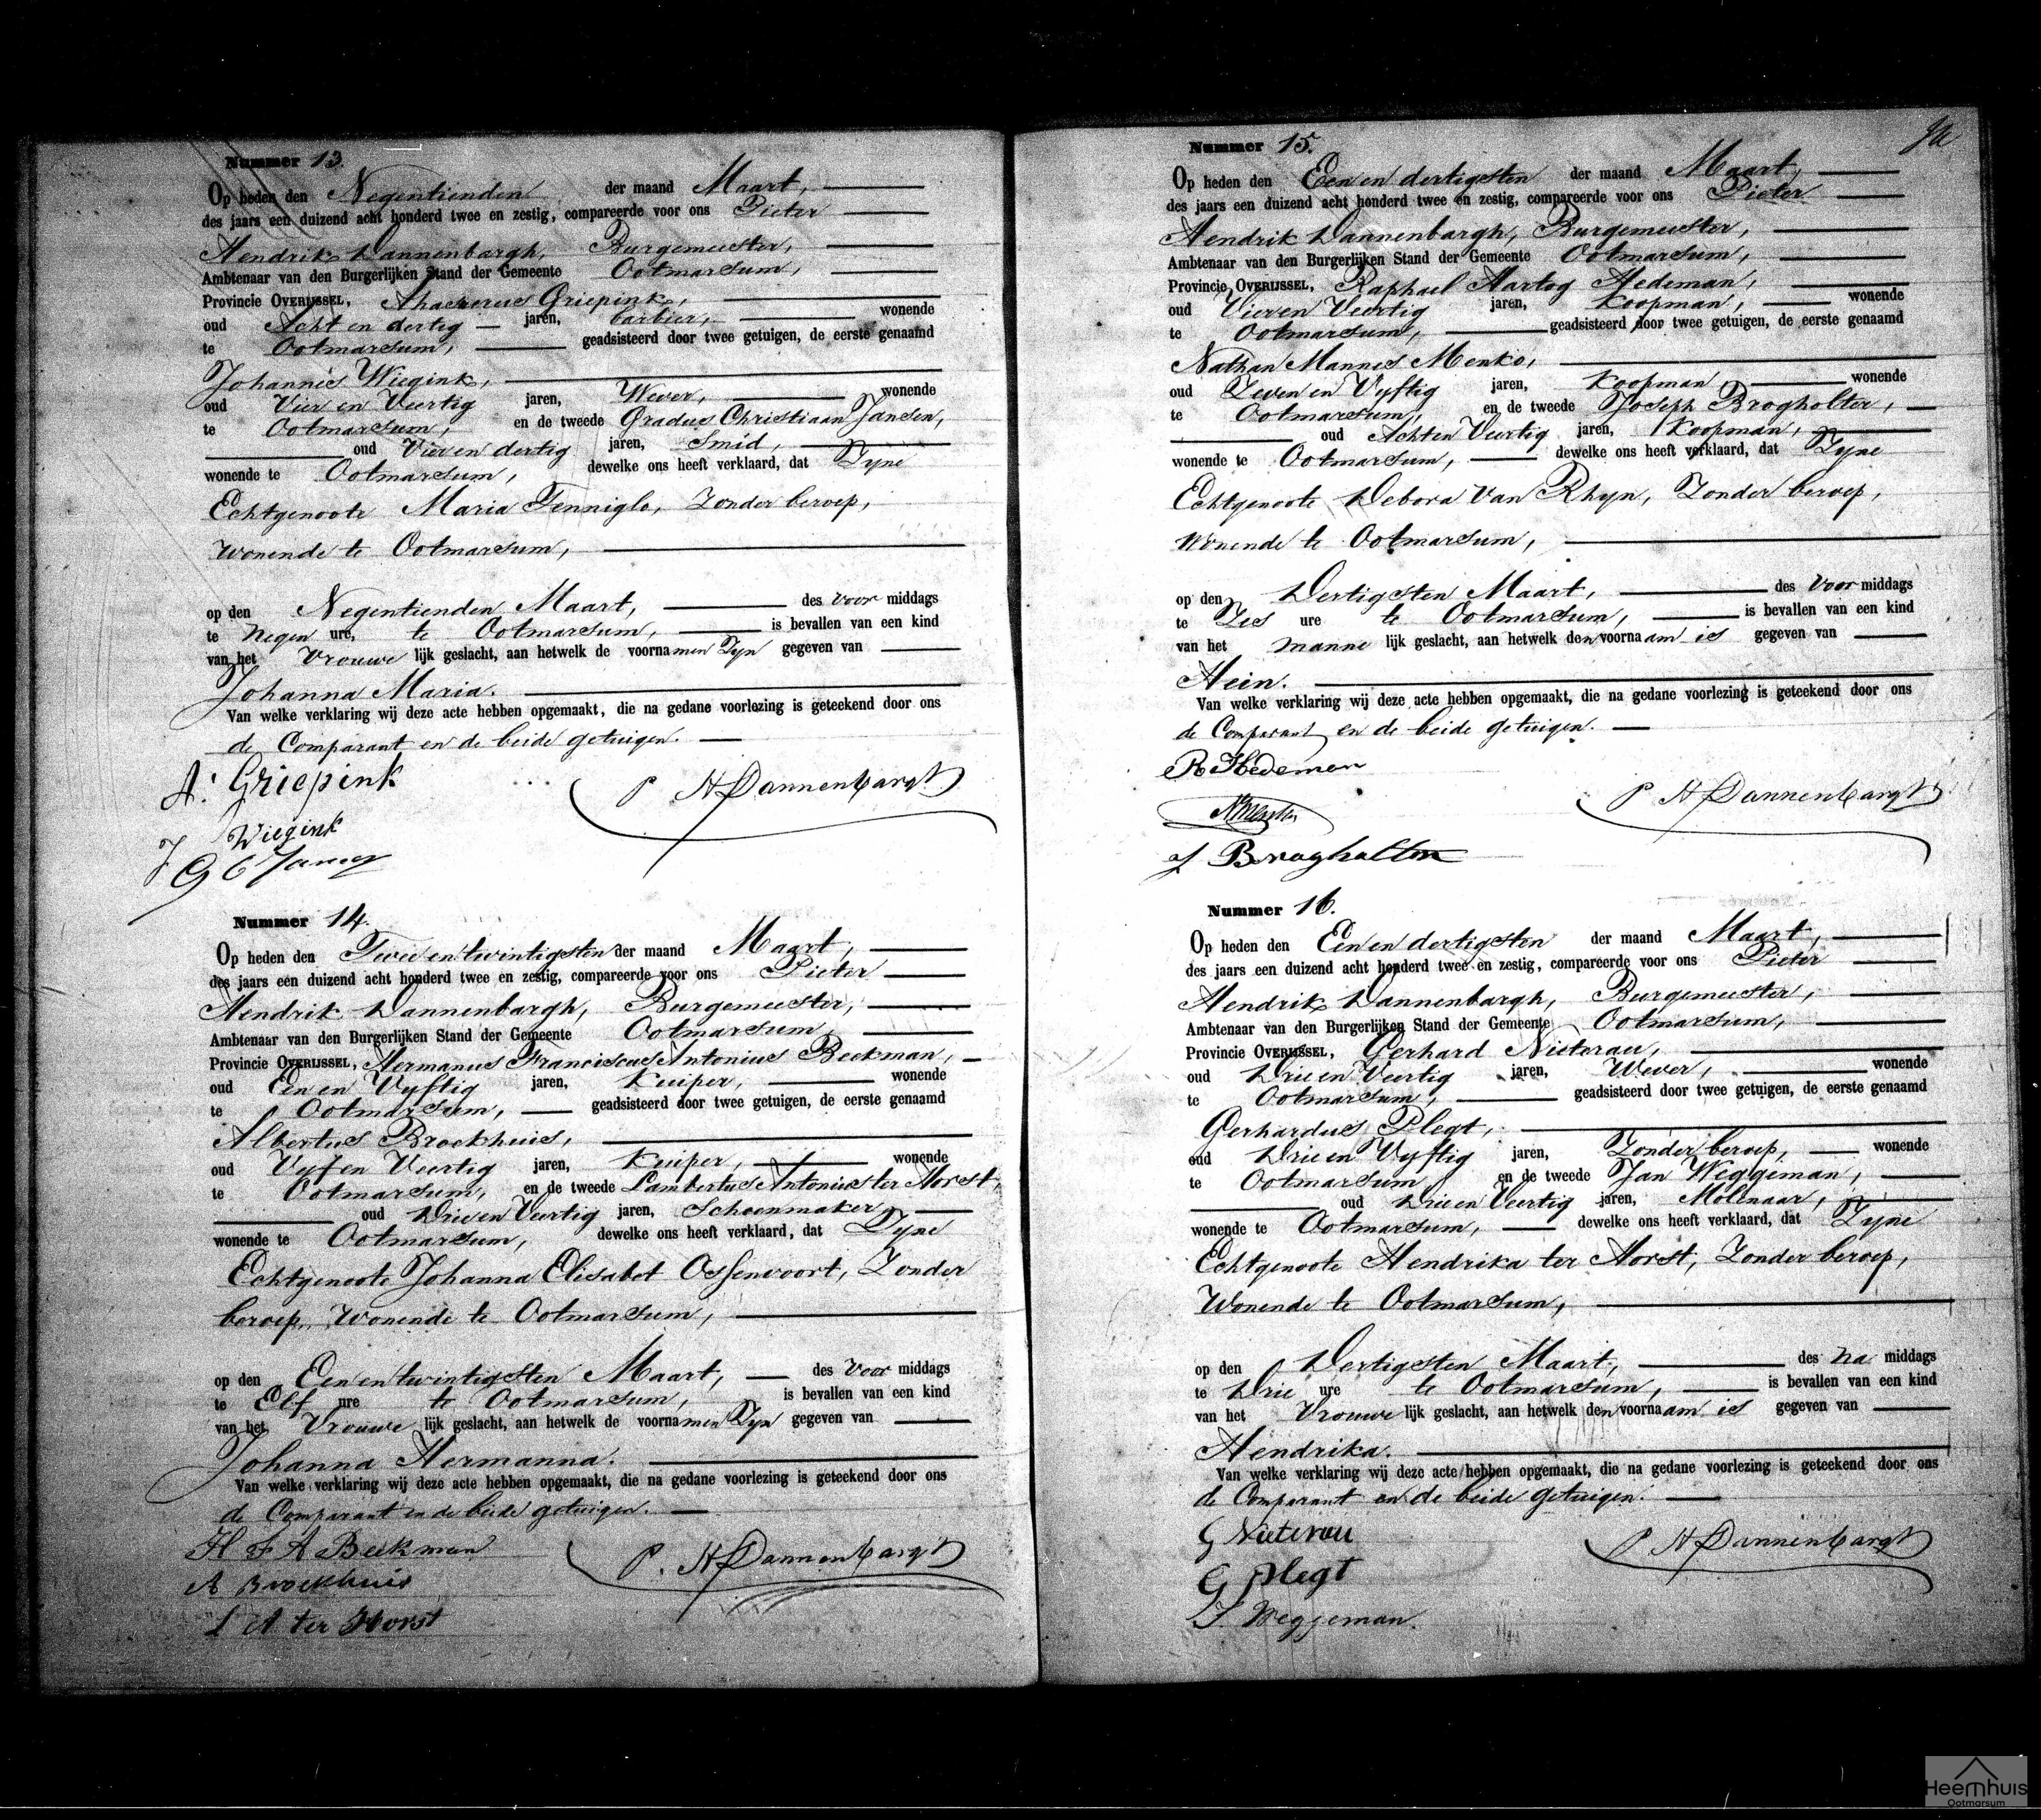 Nummer 13.
Op heden den Negentienden der maand Maart,
des jaars een duizend acht honderd twee en zestig, compareerde voor ons Pieter
Hendrik Dannenbargh, Burgemeester,
Ambtenaar van den Burgerlijken Stand der Gemeente Ootmarsum,
Provincie OVERIJSSEL, Ahasverus Griepink,
oud Acht en dertig jaren, barbier, wonende
te Ootmarsum, geadsisteerd door twee getuigen, de eerste genaamd
Johannes Wiegink,
oud Vier en Veertig jaren, Wever, wonende
te Ootmarsum, en de tweede Gradus Christiaan Jansen,
oud Vier en dertig jaren, Smid,
wonende te Ootmarsum, dewelke ons heeft verklaard, dat Zyne
Echtgenoote Maria Tenniglo, Zonder beroep,
Wonende te Ootmarsum,
op den Negentienden Maart, des Voor middags
te Negen ure, te Ootmarsum, is bevallen van een kind
van het Vrouwe lijk geslacht, aan hetwelk de voornamen Zyn gegeven van
Johanna Maria.
Van welke verklaring wij deze acte hebben opgemaakt, die na gedane voorlezing is geteekend door ons
de Comparant en de beide getuigen.
A. Griepink
P H Dannenbargh
J Wiegink
G C Jansen
Nummer 14.
Op heden den Twee en twintigsten der maand Maart,
des jaars een duizend acht honderd twee en zestig, compareerde voor ons Pieter
Hendrik Dannenbargh, Burgemeester,
Ambtenaar van den Burgerlijken Stand der Gemeente Ootmarsum,
Provincie OVERIJSSEL, Hermanus Franciscus Antonius Beekman,
oud Een en Vyftig jaren, Kuiper, wonende
te Ootmarsum, geadsisteerd door twee getuigen, de eerste genaamd
Albertus Broekhuis,
oud Vyf en Veertig jaren, Kuiper, wonende
te Ootmarsum, en de tweede Lambertus Antonius ter Horst,
oud Drie en Veertig jaren, Schoenmaker,
wonende te Ootmarsum, dewelke ons heeft verklaard, dat Zyne
Echtgenoote Johanna Elisabet Ossenvoort, Zonder
beroep, Wonende te Ootmarsum,
op den Een en twintigsten Maart, des Voor middags
te Elf ure te Ootmarsum, is bevallen van een kind
van het Vrouwe lijk geslacht, aan hetwelk de voornamen Zyn gegeven van
Johanna Hermanna.
Van welke verklaring wij deze acte hebben opgemaakt, die na gedane voorlezing is geteekend door ons
de Comparant en de beide getuigen.
H F A Beekman
P. H Dannenbargh
A Broekhuis
L A ter Horst
Nummer 15.
Op heden den Een en dertigsten der maand Maart,
des jaars een duizend acht honderd twee en zestig, compareerde voor ons Pieter
Hendrik Dannenbargh, Burgemeester,
Ambtenaar van den Burgerlijken Stand der Gemeente Ootmarsum,
Provincie OVERIJSSEL, Raphael Hartog Hedeman,
oud Vier en Veertig jaren, Koopman, wonende
te Ootmarsum, geadsisteerd door twee getuigen, de eerste genaamd
Nathan Mannes Menko,
oud Zeven en Vyftig jaren, Koopman wonende
te Ootmarsum, en de tweede Joseph Brogholter,
oud Acht en Veertig jaren, Koopman,
wonende te Ootmarsum, dewelke ons heeft verklaard, dat Zyne
Echtgenoote Debora Van Rhyn, Zonder beroep,
Wonende te Ootmarsum,
op den Dertigsten Maart, des Voor middags
te Zes ure te Ootmarsum, is bevallen van een kind
van het manne lijk geslacht, aan hetwelk den voornaam is gegeven van
Hein.
Van welke verklaring wij deze acte hebben opgemaakt, die na gedane voorlezing is geteekend door ons
de Comparant en de beide getuigen.
R Hedeman
P H Dannenbargh
J Brogholter
Nummer 16.
Op heden den Een en dertigsten der maand Maart,
des jaars een duizend acht honderd twee en zestig, compareerde voor ons Pieter
Hendrik Dannenbargh, Burgemeester,
Ambtenaar van den Burgerlijken Stand der Gemeente Ootmarsum,
Provincie OVERIJSSEL, Gerhard Nieterau,
oud Drie en Veertig jaren, Wever, wonende
te Ootmarsum, geadsisteerd door twee getuigen, de eerste genaamd
Gerhardus Plegt,
oud Drie en Vyftig jaren, Zonder beroep, wonende
te Ootmarsum, en de tweede Jan Weggeman,
oud Drie en Veertig jaren, Molenaar,
wonende te Ootmarsum, dewelke ons heeft verklaard, dat Zyne
Echtgenoote Hendrika ter Horst, Zonder beroep,
Wonende te Ootmarsum,
op den Dertigsten Maart, des na middags
te Drie ure te Ootmarsum, is bevallen van een kind
van het Vrouwe lijk geslacht, aan hetwelk den voornaam is gegeven van
Hendrika.
Van welke verklaring wij deze acte hebben opgemaakt, die na gedane voorlezing is geteekend door ons
de Comparant en de beide getuigen.
G Nieterau
P H Dannenbargh
G Plegt
J. Weggeman.
Heemhuis
Ootmarsum